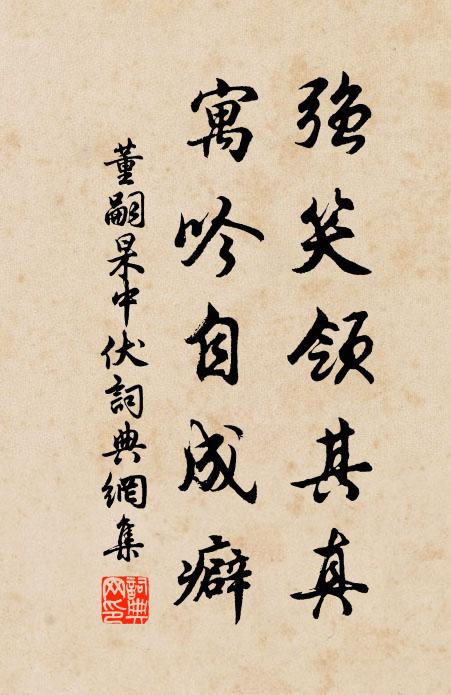 強笑領其真
寓吟自成癖
董嗣杲中伏詞典網集
詞典网印